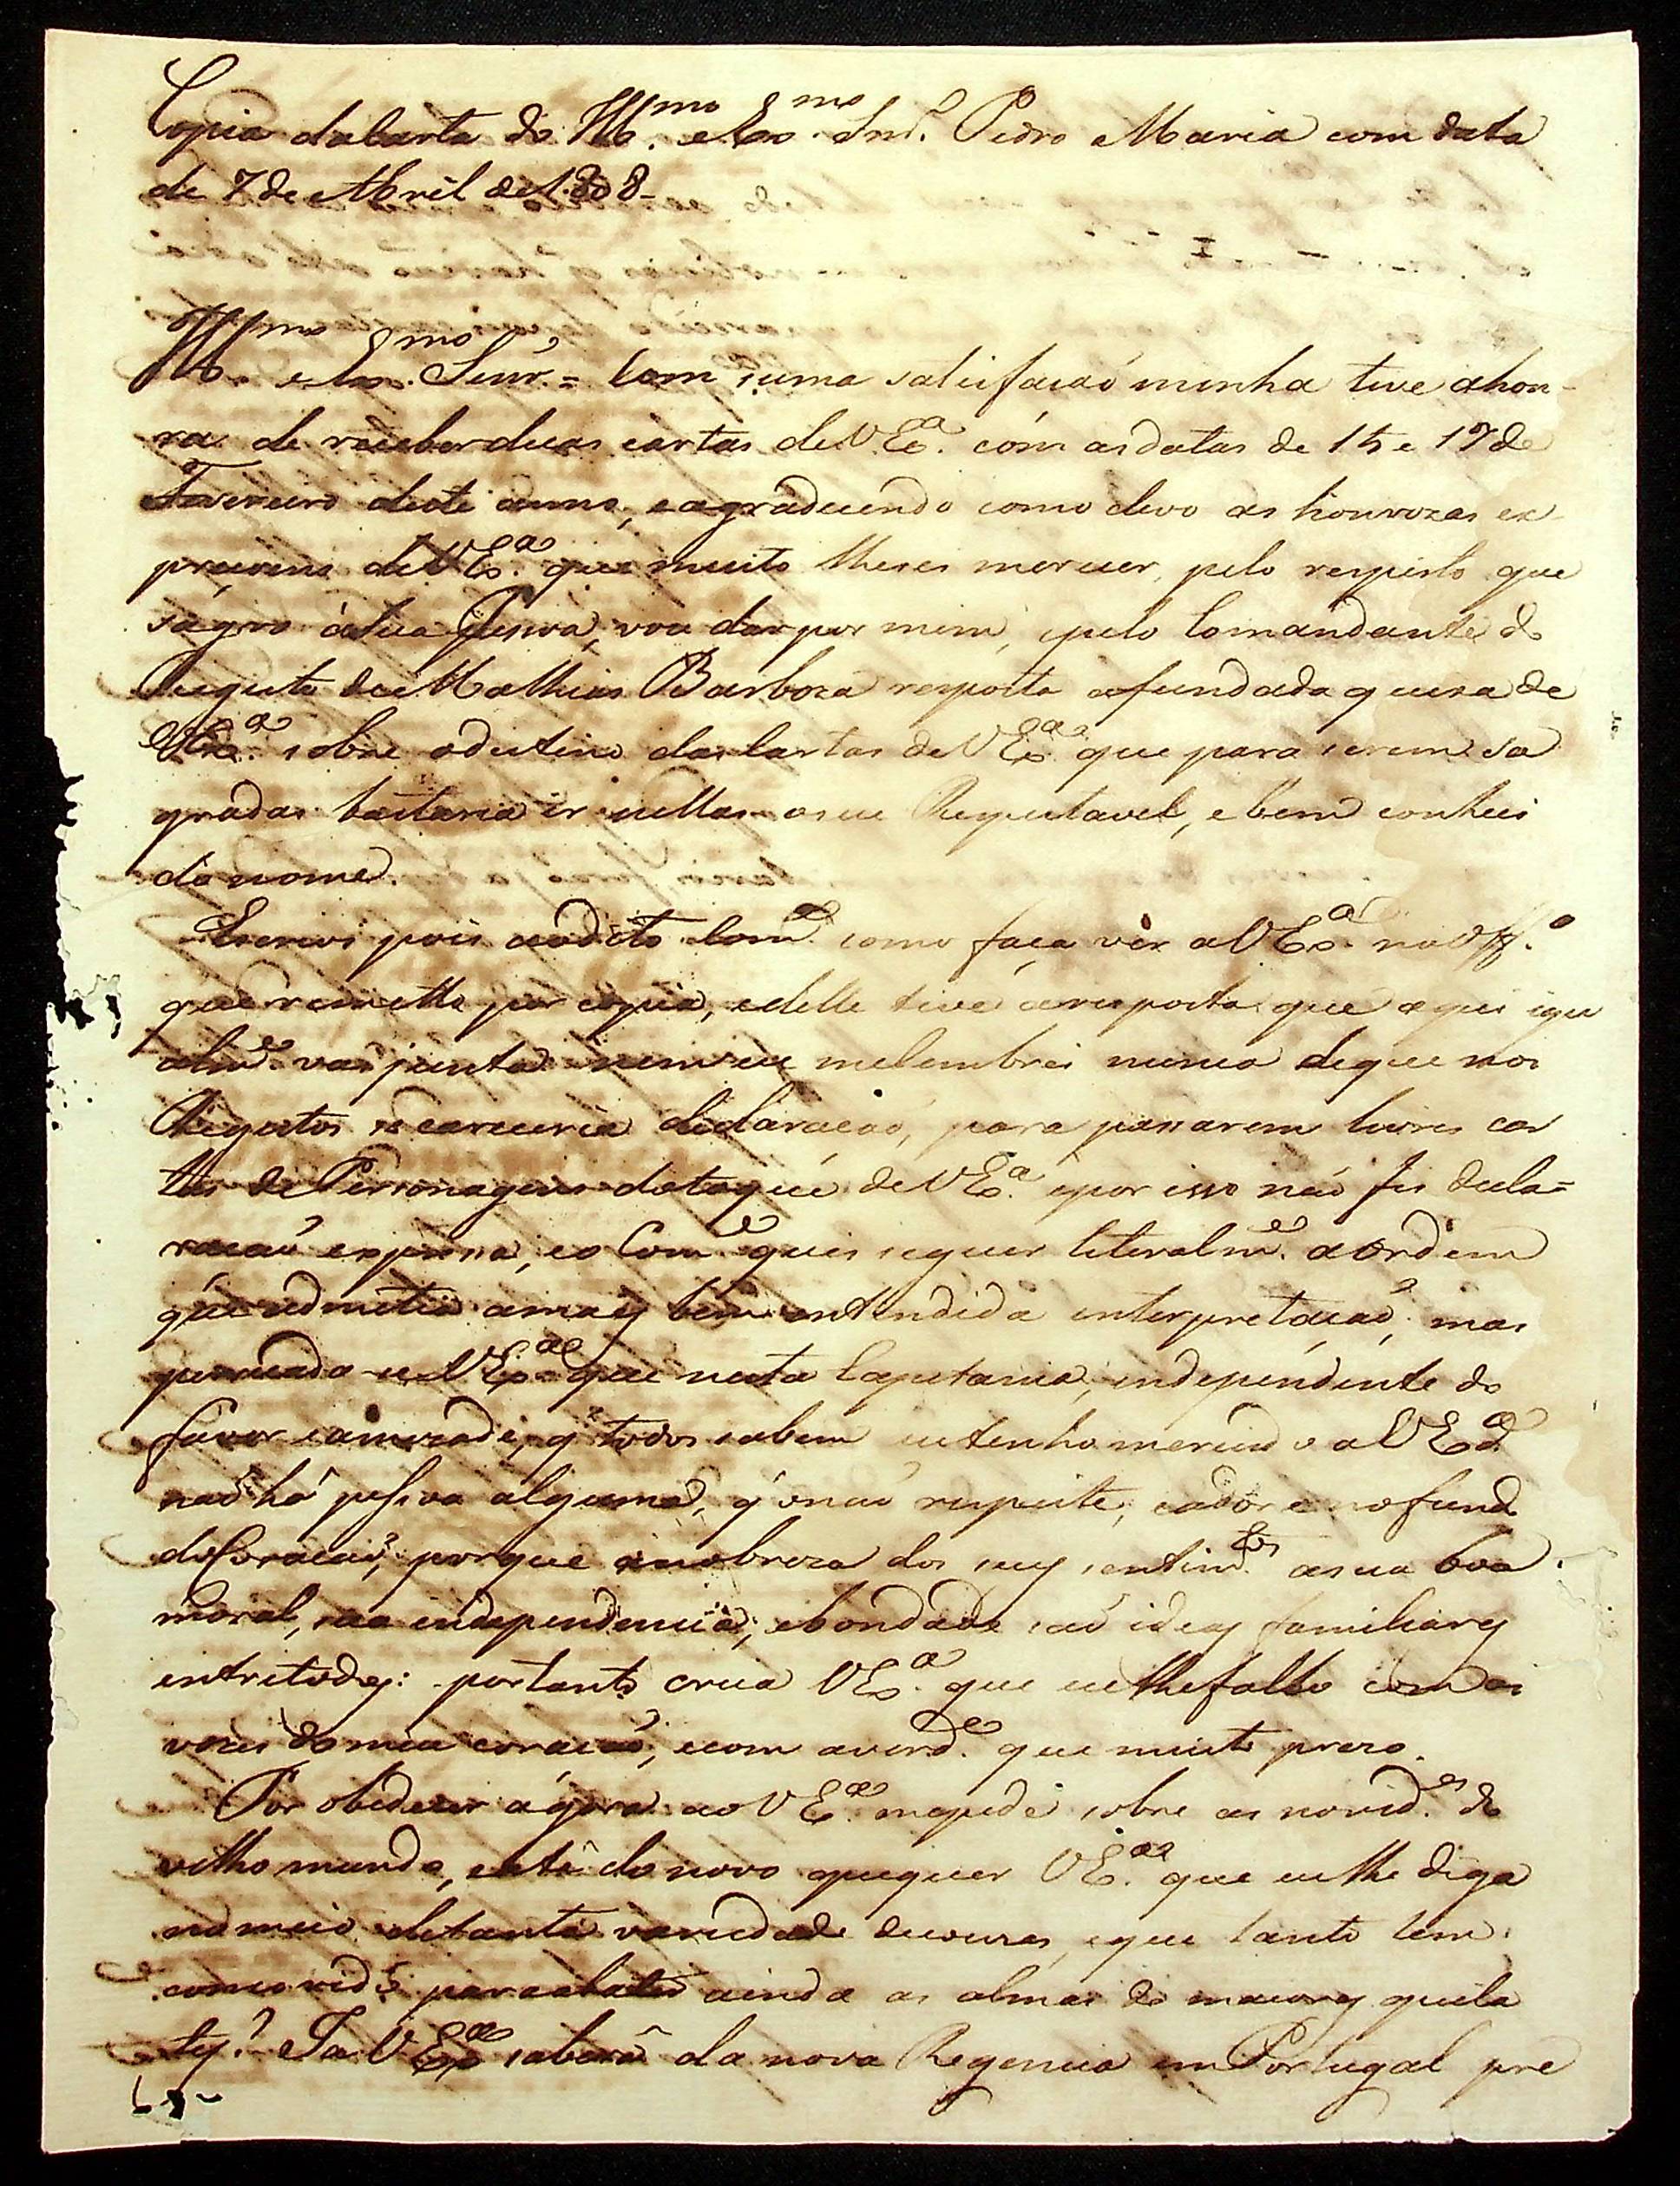 Copia da Carta do Ill.mo e Ex.mo Snr. Pedro Maria com data
de 7 de Abril de 1808-
Ill.mo e Ex.mo Senr. = Com suma satisfaçaõ minha tive ahon-
ra de receber duas cartas de V. Ex.a com as datas de 15 e 17 de
Fevereiro deste anno, e agradecendo como devo as honrozas ex
preçoens de V Ex.a que muito lhe sei merecer, pelo respeito que
sagro á sua Pessoa, vou dar por mim, e pelo Comandante do
Registo de Mathias Barboza resposta afundada queixa de
V Ex.a sobre odestino das Cartas de V Ex.a que para serem sa
gradas bastaria ir nellas oseu Respeitavel, e bem conheci
do nome.
Escrevi pois ao dito Com.e como faço ver a V Ex.a no Off.o
que remetto por copia, e delle tive aresposta que aqui igu
alm.e vai junta nem eu melembrei nunca de que nos
Registos se careceria declaraçaõ, para passarem livres car
tas de Personagens dotoque de V Ex.a e por isso naõ fis decla=
raçaõ expressa, e o Com.e quis seguir literalm.e a ordem
que admetia a mais bem entendida interpretaçaõ; mas
persuada-se V Ex.a que nesta Capitania, independente do
favor e amizade, q todos sabem eu tenho merecido a V Ex.a
naõ há pessoa alguma, q' o naõ respeite, e adore no fundo
do Coraçaõ, porque a nobreza dos seus sentim.tos asua boa
moral, sua independencia, e bondade saõ ideas familiares
entre todos: portanto crea V Ex.a que eu lhe fallo com as
vozes do meu coraçaõ, e com averd.e que muito prezo.
Por obedecer agora ao V Ex.a me pede sobre as novid.es do
velho mundo, e até do novo que quer V Ex.a que eu lhe diga
no meio de tanta variedade de couzas, e que tanto tem
comovido para abater ainda as almas de maiores quila
tes? Ja V Ex.a saberá da nova Regencia em Portugal pre